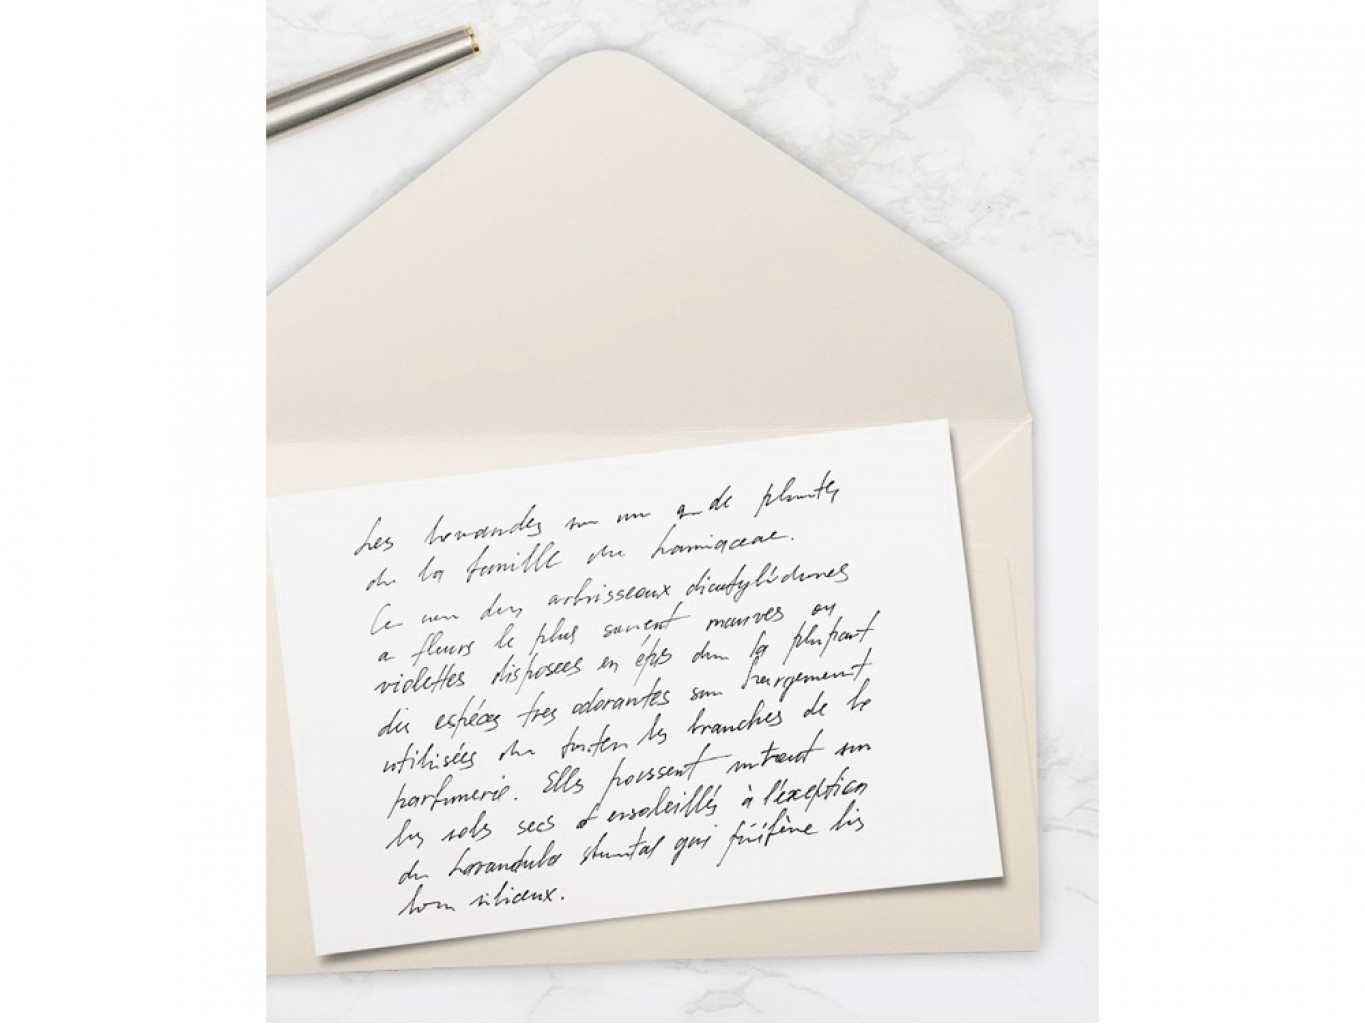 Les lavandes sont un genre de plantes
de la famille des Lamiaceae.
Ce sont des arbrisseaux dicotylédones
a fleurs le plus souvent mauves ou
violettes disposées en épis dans la plupart
des espèces tres odorantes sont largement
utilisées dans toutes les branches de la
parfumerie. Elles poussent surtout sur
les sols secs et ensoleillés à l'exception
de Lavandula qui préfère les
siliceux.